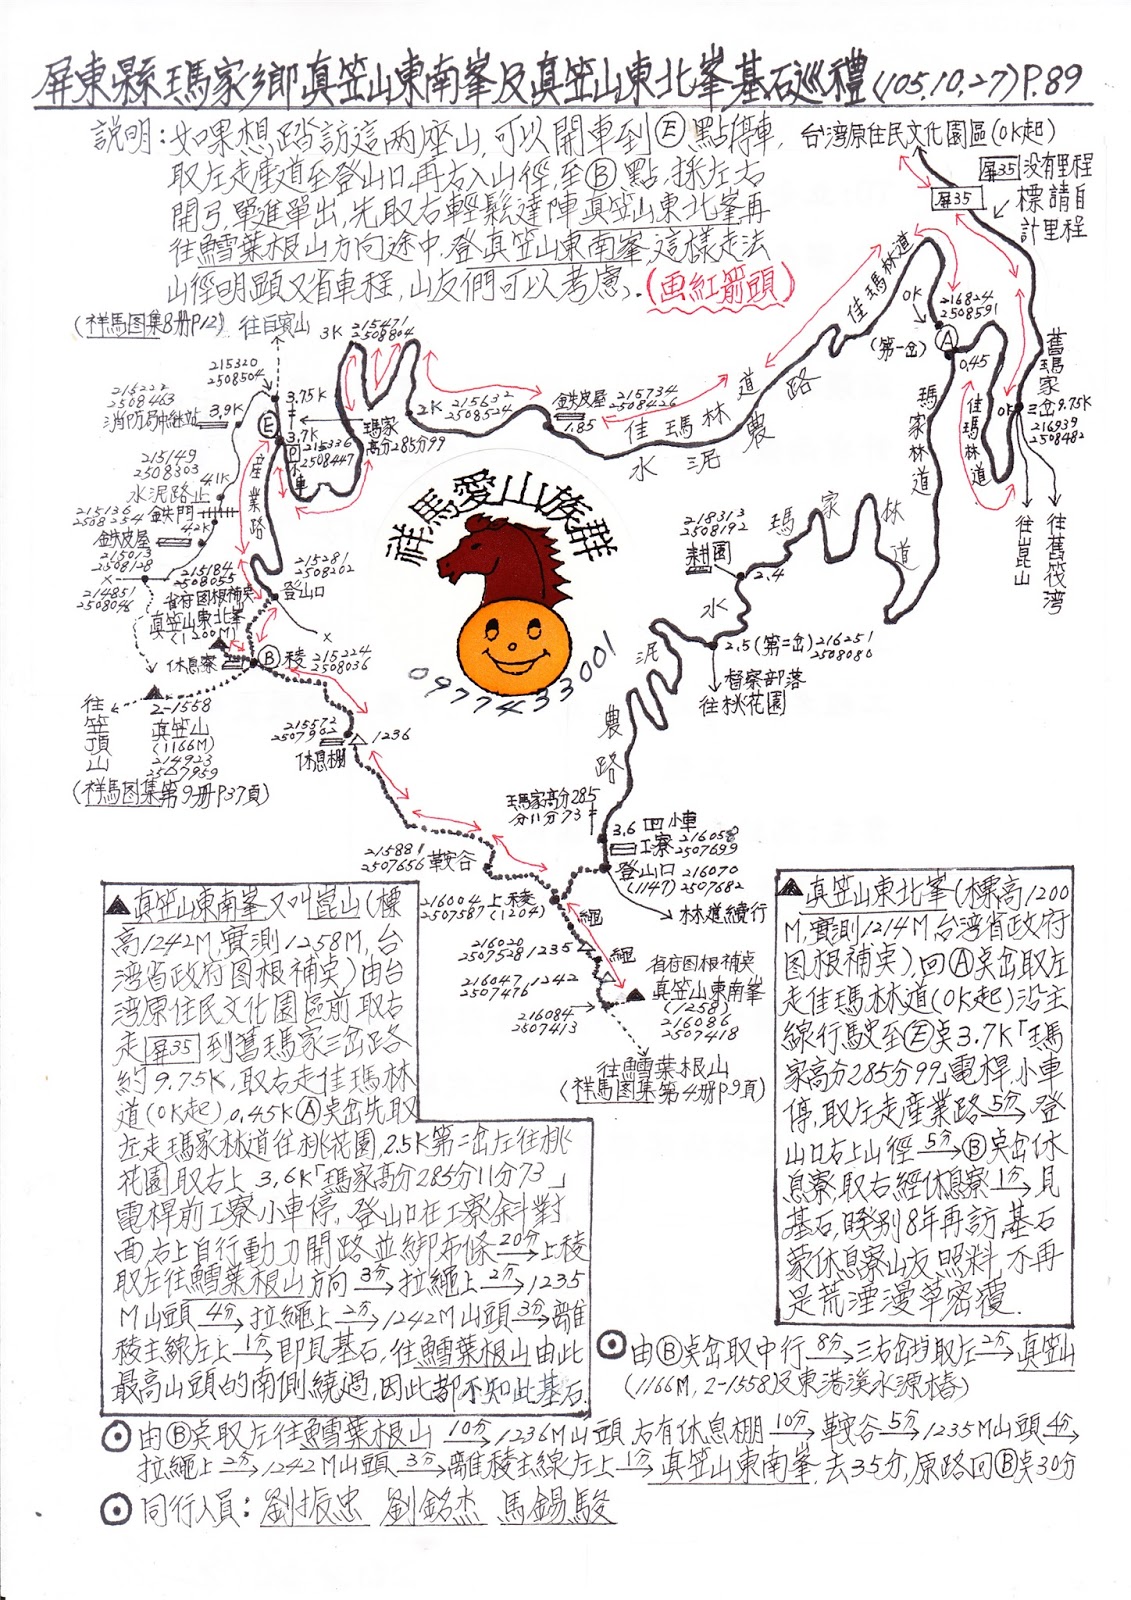 屏東縣瑪家鄉真笠山東南峯及真笠山東北峯基石巡禮(105.10.27)P.89
說明:如果想踏訪這兩座山,可以開車到Ⓔ點停車,
取左走產道至登山口,再右入山徑,至Ⓑ點,採左右
開弓,單進單出,先取右輕鬆達陣真笠山東北峯,再
往鱈葉根山方向途中,登真笠山東南峯,這樣走法
山徑明顯又省車程,山友們可以考慮。(画紅箭頭)
台灣原住民文化園區(0K起)
屏35
屏35没有里程
標請自
計里程
(祥馬图集8册P12)
往白賓山
3K
215471
2508804
215320
2508504
3.75K
215222
2508463
消防局中継站
3.9K
Ⓔ
3.7K
P
小車
215336
2508447
瑪家
高分285分99
2K
215632
2508524
鉄皮屋
1.85
215734
2508426
佳瑪林道
水泥農路
佳瑪林道
0K
216824
2508591
(第一岔)
Ⓐ
0.45
佳瑪林道
0K
三岔9.75K
216939
2508482
舊瑪家
往崑山
往舊筏湾
瑪家林道
215149
2508303
水泥路止
4.1K
215136
2508254
鉄門
4.2K
鉄皮屋
215013
2508128
214851
2508046
產業路
215184
2508055
省府图根補奌
真笠山東北峯
(1200M)
215281
2508202
登山口
休息寮
Ⓑ稜
215224
2508036
往笠頂山
2-1558
真笠山
(1166M)
214923
2507959
(祥馬图集第9册P37頁)
215572
2507902
休息棚
1236
祥馬愛山族群
0977433001
218313
2508192
耕園
2.4
瑪家林道
水泥農路
2.5(第二岔)
216251
2508080
督察部落
往桃花園
瑪家高分285
分11分73
3.6
小車
工寮
216058
2507699
登山口
(1147)
216070
2507682
林道續行
215881
2507656
鞍谷
216004
2507587
上稜
(1204)
繩
216020
2507528
1235
繩
216047
2507476
1242
省府图根補奌
真笠山東南峯
(1258)
216086
2507418
216084
2507413
往鱈葉根山
(祥馬图集第4册P9頁)
▲真笠山東南峯又叫崑山(標
高1242M,實測1258M,台
湾省政府图根補奌)由台
湾原住民文化園區前取右
走屏35到舊瑪家三岔路各
約9.75K,取右走佳瑪林
道(0K起),0.45KⒶ奌岔先取
左走瑪家林道往桃花園,2.5K第二岔左往桃
花園取右上 3.6K「瑪家高分285分11分73」
電桿前工寮小車停,登山口在工寮斜對
面,右上自行動刀開路並綁布條20分→上稜
取左往鱈葉根山方向3分→拉繩上2分→1235
M山頭4分→拉繩上2分→1242M山頭3分→離
稜主線左上1分→即見基石,往鱈葉根山由此
最高山頭的南側繞過,因此都不知此基石.
▲真笠山東北峯(標高1200
M,實測1214M台湾省政府
图根補奌),回Ⓐ奌岔取左
走佳瑪林道(0K起)沿主
線行駛至Ⓔ奌3.7K「瑪
家高分285分99」電桿,小車
停,取左走產業路5分→登
山口右上山徑5分→Ⓑ奌岔休
息寮,取右經休息寮1分→見
基石,睽別8年再訪,基石
蒙休息寮山友照料,不再
是荒湮漫草密覆.
⊙由Ⓑ奌岔取中行8分→三右岔切取左2分→真笠山
(1166M,2-1558及東港溪水源樁)
⊙由Ⓑ奌取左往鱈葉根山10分→1236M山頭右有休息棚10分→鞍谷5分→1235M山頭4分→
拉繩上2分→1242M山頭3分→離稜主線左上1分→真笠山東南峯.去35分,原路回Ⓑ奌30分
⊙同行人員:劉振忠 劉銘杰 馬錫駿